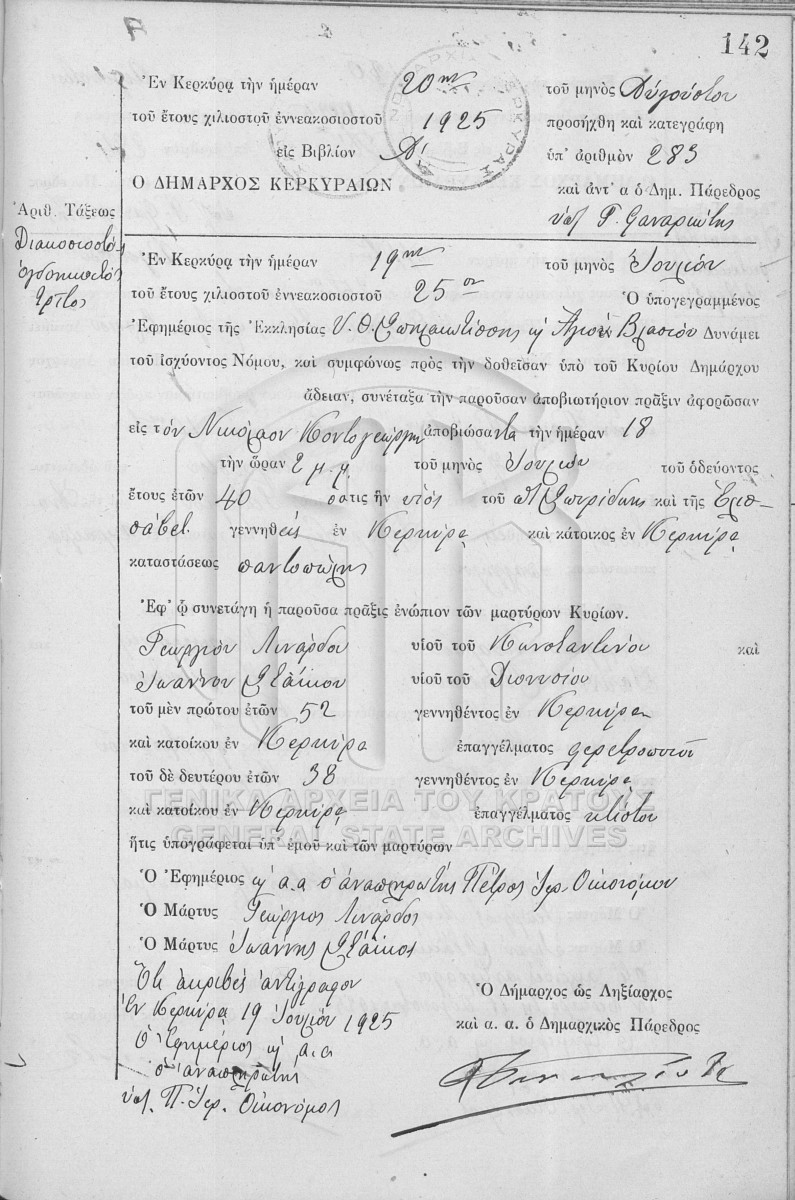 142
Ἐν Κερκύρᾳ τὴν ἡμέραν 20ην τοῦ μηνὸς Αὐγούστου
τοῦ ἔτους χιλιοστοῦ ἐννεακοσιοστοῦ 1925 προσήχθη καὶ κατεγράφη
εἰς Βιβλίον Α' ὑπ' ἀριθμὸν 283
Ο ΔΗΜΑΡΧΟΣ ΚΕΡΚΥΡΑΙΩΝ καὶ ἀντ' α ὁ Δημ. Πάρεδρος
Ἀριθ. Τάξεως
Διακοσιοστὸν
ὀγδοηκοστὸν
τρίτον
Ἐν Κερκύρᾳ τὴν ἡμέραν 19ην τοῦ μηνὸς Ἰουλίου
τοῦ ἔτους χιλιοστοῦ ἐννεακοσιοστοῦ 25ου Ὁ ὑπογεγραμμένος
Ἐφημέριος τῆς Ἐκκλησίας Υ. Θ. Σπηλαιωτίσσης κ Ἁγίου Βλασίου Δυνάμει
τοῦ ἰσχύοντος Νόμου, καὶ συμφώνως πρὸς τὴν δοθεῖσαν ὑπὸ τοῦ Κυρίου Δημάρχου
ἄδειαν, συνέταξα τὴν παροῦσαν ἀποβιωτήριον πρᾶξιν ἀφορῶσαν
εἰς τὸν Νικόλαον Κοντογεώργη ἀποβιώσαντα τὴν ἡμέραν 18
τὴν ὥραν 2 μ.μ. τοῦ μηνὸς Ἰουλίου τοῦ ὁδεύοντος
ἔτους ἐτῶν 40 ὅστις ἦν υἱὸς τοῦ Σπυρίδωνος καὶ τῆς Ἐλισ-
σάβετ. γεννηθεὶς ἐν Κερκύρᾳ καὶ κάτοικος ἐν Κερκύρᾳ
καταστάσεως παντοπώλης
Ἐφ' ᾧ συνετάγη ἡ παροῦσα πρᾶξις ἐνώπιον τῶν μαρτύρων Κυρίων.
Γεωργίου Λινάρδου υἱοῦ τοῦ Κωνσταντίνου καὶ
Ἰωάννου Στάϊκου υἱοῦ τοῦ Διονυσίου
τοῦ μὲν πρώτου ἐτῶν 52 γεννηθέντος ἐν Κερκύρᾳ
καὶ κατοίκου ἐν Κερκύρᾳ ἐπαγγέλματος φερετροποιοῦ
τοῦ δὲ δευτέρου ἐτῶν 38 γεννηθέντος ἐν Κερκύρᾳ
καὶ κατοίκου ἐν Κερκύρᾳ ἐπαγγέλματος κτίστου
ΓΕΝΙΚΑ ΑΡΧΕΙΑ ΤΟΥ ΚΡΑΤΟΥΣ
GENERAL STATE ARCHIVES
ἥτις ὑπογράφεται ὑπ' ἐμοῦ καὶ τῶν μαρτύρων
Ὁ Ἐφημέριος κ α.α ὁ ἀναπληρωτὴς Πέτρος Ἱερ. Οἰκονόμου
Ὁ Μάρτυς Γεώργιος Λινάρδος
Ὁ Μάρτυς Ἰωάννης Στάϊκος
Ὅτι ἀκριβὲς ἀντίγραφον
Ἐν Κερκύρᾳ 19 Ἰουλίου 1925
Ὁ Ἐφημέριος κ α.α
ὁ ἀναπληρωτὴς
ὑπ. Π. Ἱερ. Οἰκονόμος
Ὁ Δήμαρχος ὡς Ληξίαρχος
καὶ α. α. ὁ Δημαρχικὸς Πάρεδρος